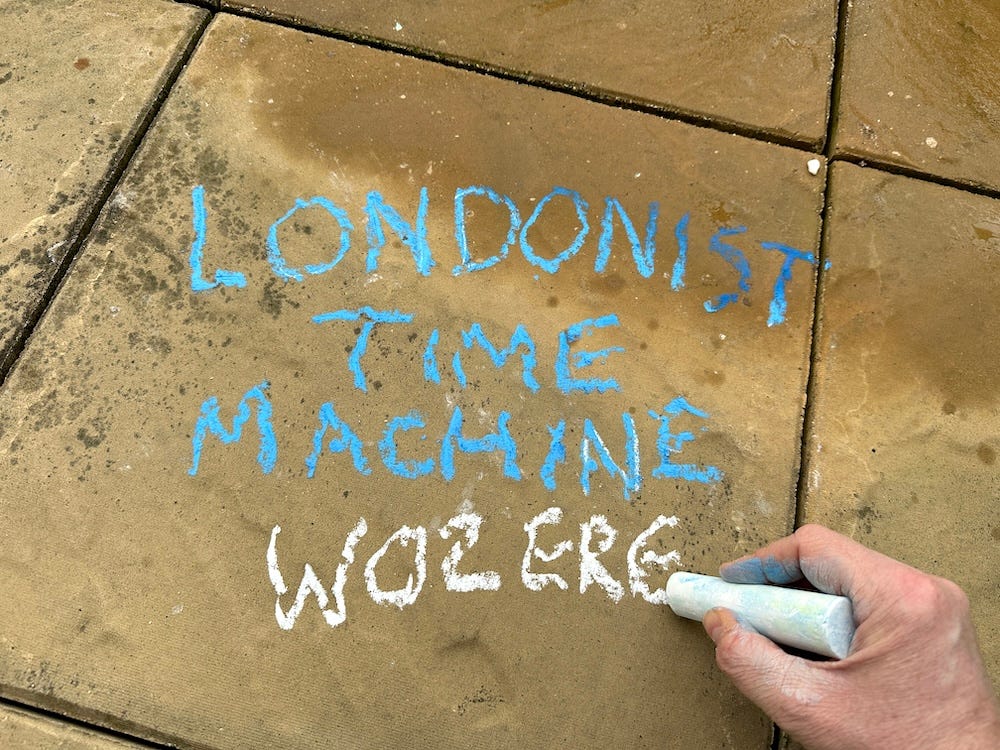 LONDONIST
TIME
MACHINE
WOZ ERE